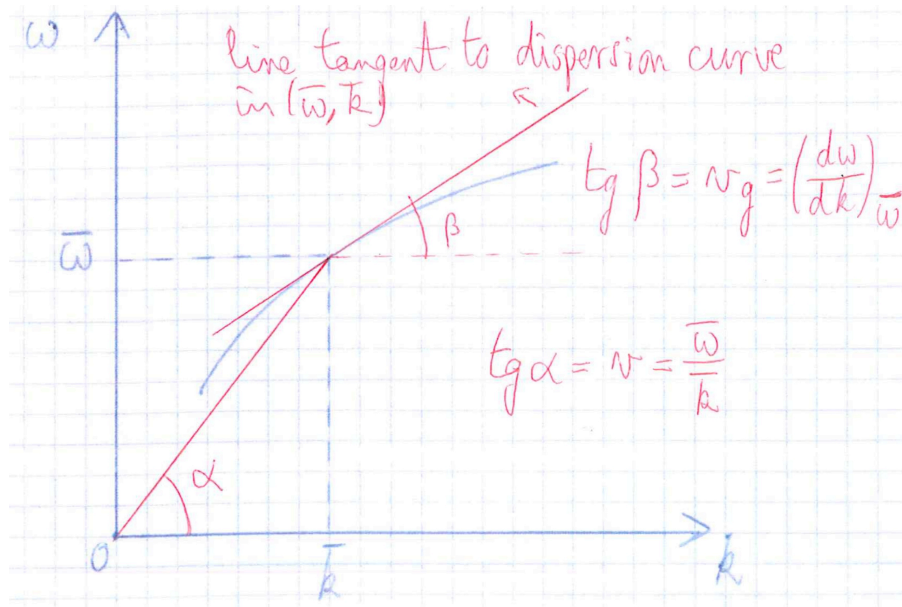 ω
line tangent to dispersion curve
in (ω̅, k̅)
tg β = v_g = (dω/dk)_ω̅
β
ω̅
tg α = v = ω̅/k̅
α
O
k̅
k